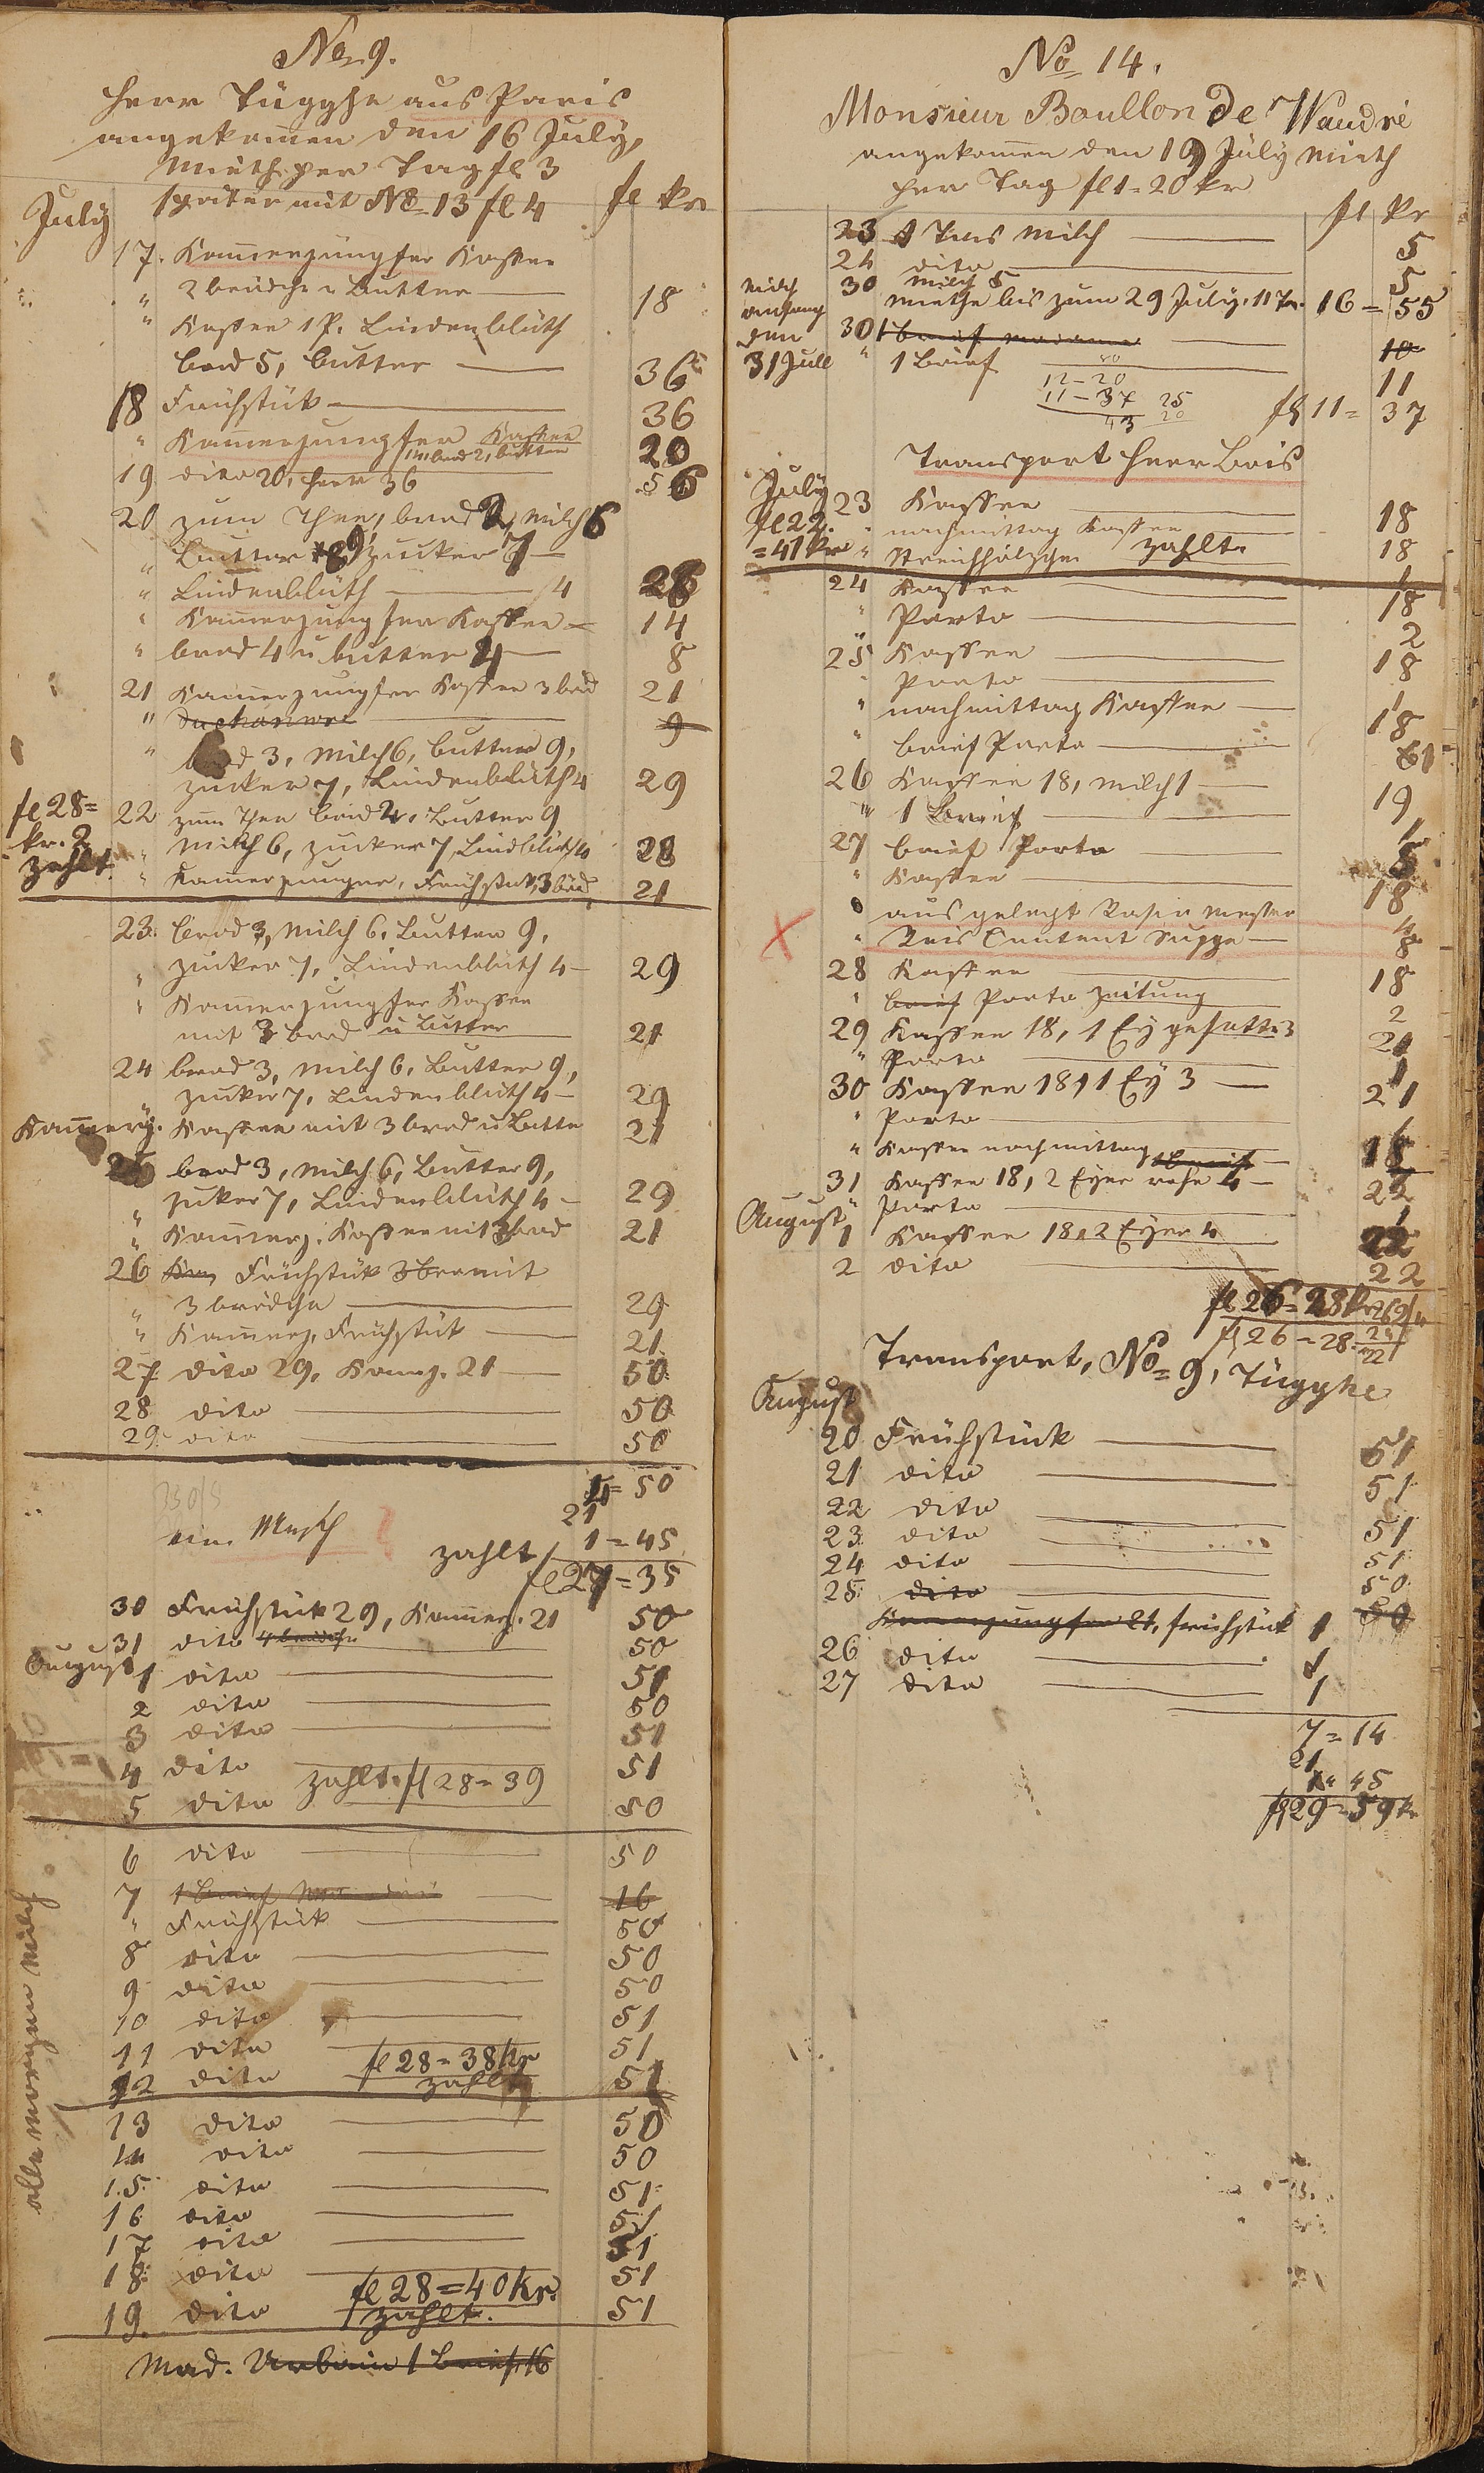 No 9.
Herr Tügghe aus Paris
angekomen den 16 July,
Miethe per Tag fl 3
später mit No 13 fl 4
fl kr
July
17. Kamerjungfer Kaffee
" 2 brödche u Butter 18
" Kaffee 1 P. Lindenblüth
brod 5, butter 36
18 Frühstük 36
" Kamerjungfer Kaffee
brod 2, butter 20
19 dito 20, Herr 36 56
20 zum Thee, brod 2, Milch 6
" Butter 9 Zucker 7
" Lindenblüth 4 28
" Kamerjungfer Kaffee 14
" brod 4 u butter 4 8
21 Kamerjungfer Kaffee 3 brod 21
" 9
" brod 3, Milch 6, butter 9,
zucker 7, Lindenblüth 4 29
fl 28=
kr. 2
zahlt
22 zum Thee brod 2, Butter 9
" Milch 6, zucker 7, Lindblüth 4 28
" Kamerjungfer, Frühstük, 3 bröd 21
23. brod 3, Milch 6, Butter 9,
" zucker 7, Lindenblüth 4 29
" Kamerjungfer Kaffee
mit 3 brod u Butter 21
24 brod 3, Milch 6, Butter 9,
" zucker 7, Lindenblüth 4 29
Kamerj. Kaffee mit 3 brod u Butte 21
25 brod 3, Milch 6, Butter 9,
" zuker 7, Lindenblüth 4 29
" Kamerj. Kaffee mit 3 brod 21
26 Frühstük mit
" 3 brödche 29
" Kamerj. Frühstük 21
27 dito 29, Kamj. 21 50
28 dito 50
29 dito 50
= 50
21
1 = 45
zahlt fl 27 = 35
30 Frühstük 29, Kamerj. 21 50
31 dito 4 brödche 50
August 1 dito 51
2 dito 50
3 dito 51
4 dito 51
zahlt fl 28 = 39
5 dito 50
6 dito 50
7 1 Brief 16
" Frühstük 50
8 dito 50
9 dito 50
10 dito 51
11 dito 51
fl 28 = 38 kr
zahlt
12 dito 51
alle morgen milch
13 dito 50
14 dito 50
15 dito 51
16 dito 51
17 dito 51
18 dito 51
fl 28 = 40 kr.
zahlt.
19. dito 51
Mad. Urbain 1 Brief 16
No 14.
Monsieur Boullon De Waudré
angekomen den 19 July Mieth
per Tag fl 1 = 20 kr
fl kr
23 1 Tas Milch 5
24 dito 5
Milch
anfang
den
31 Jull
30 Milch 5
miethe bis zum 29 July. 11 Ta. 16 = 55
30 1 brief 10
" 1 Brief 11
12 - 20
11 - 37
43
fl 11 = 37
Transport Herr Bois
July
fl 22.
= 41 kr
23 Kaffee 18
" nachmittag Kaffee 18
" Streichhölzche zahlt. 1
24 Kaffee 18
" Porto 2
25 Kaffee 18
" Porto 1
" nachmittag Kaffee 18
" brief Porto 61
26 Kaffee 18, milch 1 19
" 1 Brief 1
27 brief Porto 5
" Kaffee 18
" aus gelegt Rasir messer 4
" Suppe 8
28 Kaffee 18
" brief Porto Zeitung 2
29 Kaffee 18, 1 Ey 3 21
" Porto 1
30 Kaffee 18, 1 Ey 3 21
" Porto 1
" Kaffee nachmittag 18
31 Kaffee 18, 2 Eyer rohe 4 22
" Porto 1
August 1 Kaffee 18, 2 Eyer 4 22
2 dito 22
fl 26 = 28 kr
fl 26 = 28.
Transport, No 9, Tügghe
August
20 Frühstück 51
21 dito 51
22 dito
23 dito 51
24 dito 51
25 dito 50
Kamerjungfer 21, frühstück 1 50
26 dito 1
27 dito 1
7 = 14
21
1 = 45
fl 29 = 59 kr